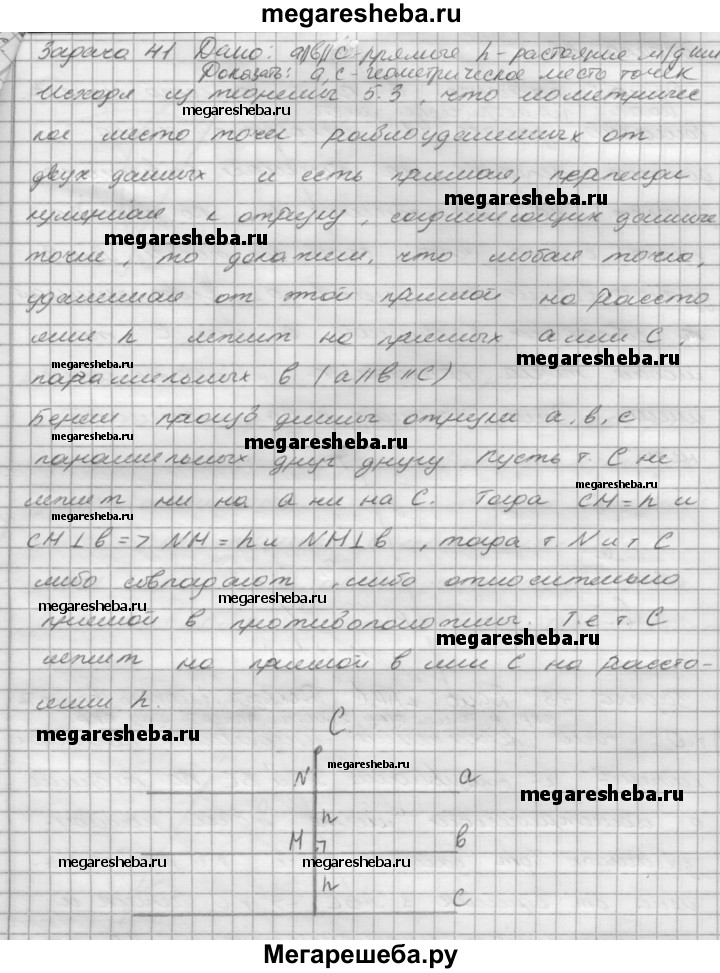 megaresheba.ru
Задача 41 Дано: a||b||c-прямые h-растояние м/д ними
Доказать: a,c-геометрическое место точек
Исходя из теоремы 5.3, что геометричес
megaresheba.ru
кое место точек равноудаленных от
двух данных и есть прямая, перпенди
megaresheba.ru
кулярная к отрезку, соединяющих данные
megaresheba.ru
точки, то докажем, что любая точка,
удаленная от этой прямой на рассто
янии h лежит на прямых a или C,
megaresheba.ru
megaresheba.ru
параллельных в (a||в||C)
Берем произв длины отрезки a, в, с
megaresheba.ru
megaresheba.ru
параллельных друг другу Пусть т. C не
megaresheba.ru
лежит ни на a ни на C. Тогда CH=h и
megaresheba.ru
CH⊥в=> NH=h и NH⊥в, тогда т. N и т C
либо совпадают, либо относительно
megaresheba.ru
megaresheba.ru
прямой в противоположны. Т.е т. C
megaresheba.ru
лежит на прямой в или C на рассто-
янии h.
megaresheba.ru
C
megaresheba.ru
N a
megaresheba.ru
h
M в
megaresheba.ru
megaresheba.ru
h
C
Мегарешеба.ру